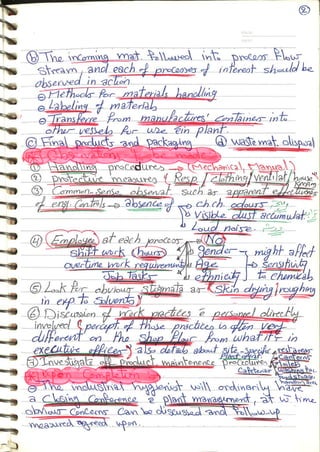 (b) The incoming mat. followed into process flow
stream, and each of processes of interest should be
observed in action
Methods for materials handling
Labeling of materials
Transfere from manufactures' container into
other vessels for use in plant.
(c) Final products and packaging (d) waste mat. disposal
(1) Handling procedures → (Mechanical, Manual)
(2) Protective measures (Resp, Clothing, Ventilat, house keeping
(3) Common-Sense observat. such as apparent effectiveness
of eng. Controls → absence of → ch.ch. odours
Visible dust accumulat
Loud noise
(4) Employee at each process → No
shift work (hours) Gender might affect
overtime work requirements Age sensitivity
Job Tasks ethnicity to chemicals
(5) Look for obvious stigmata as (Skin drying/roughing
in exp to Solvents)
(6) Discussion of work practices personel directly
involved (percept. of those practices is often very
different on the Shop Floor from what it is in
executive offices) also details about site-specific
(7) Investigate of product maintenence procedures
Cafeterias
Upon Completion
The industrial hygienist will ordinarily have
a Closing Conference plant management, at w time
obvious Concerns Can be discussed and follow-up
measured agreed upon.